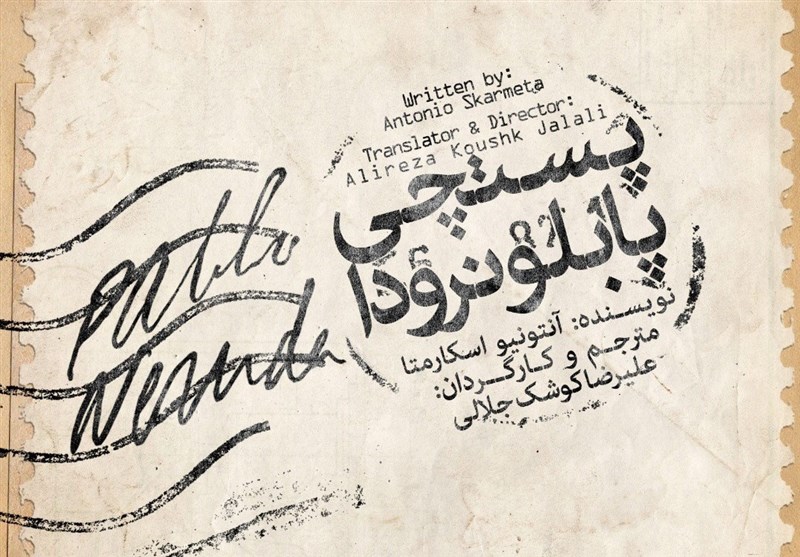 Written by:
Antonio Skarmeta
Translator & Director:
Alireza Koushk Jalali
پستچی
پابلو نرودا
نویسنده: آنتونیو اسکارمتا
مترجم و کارگردان:
علیرضا کوشک جلالی
Pablo
Neruda